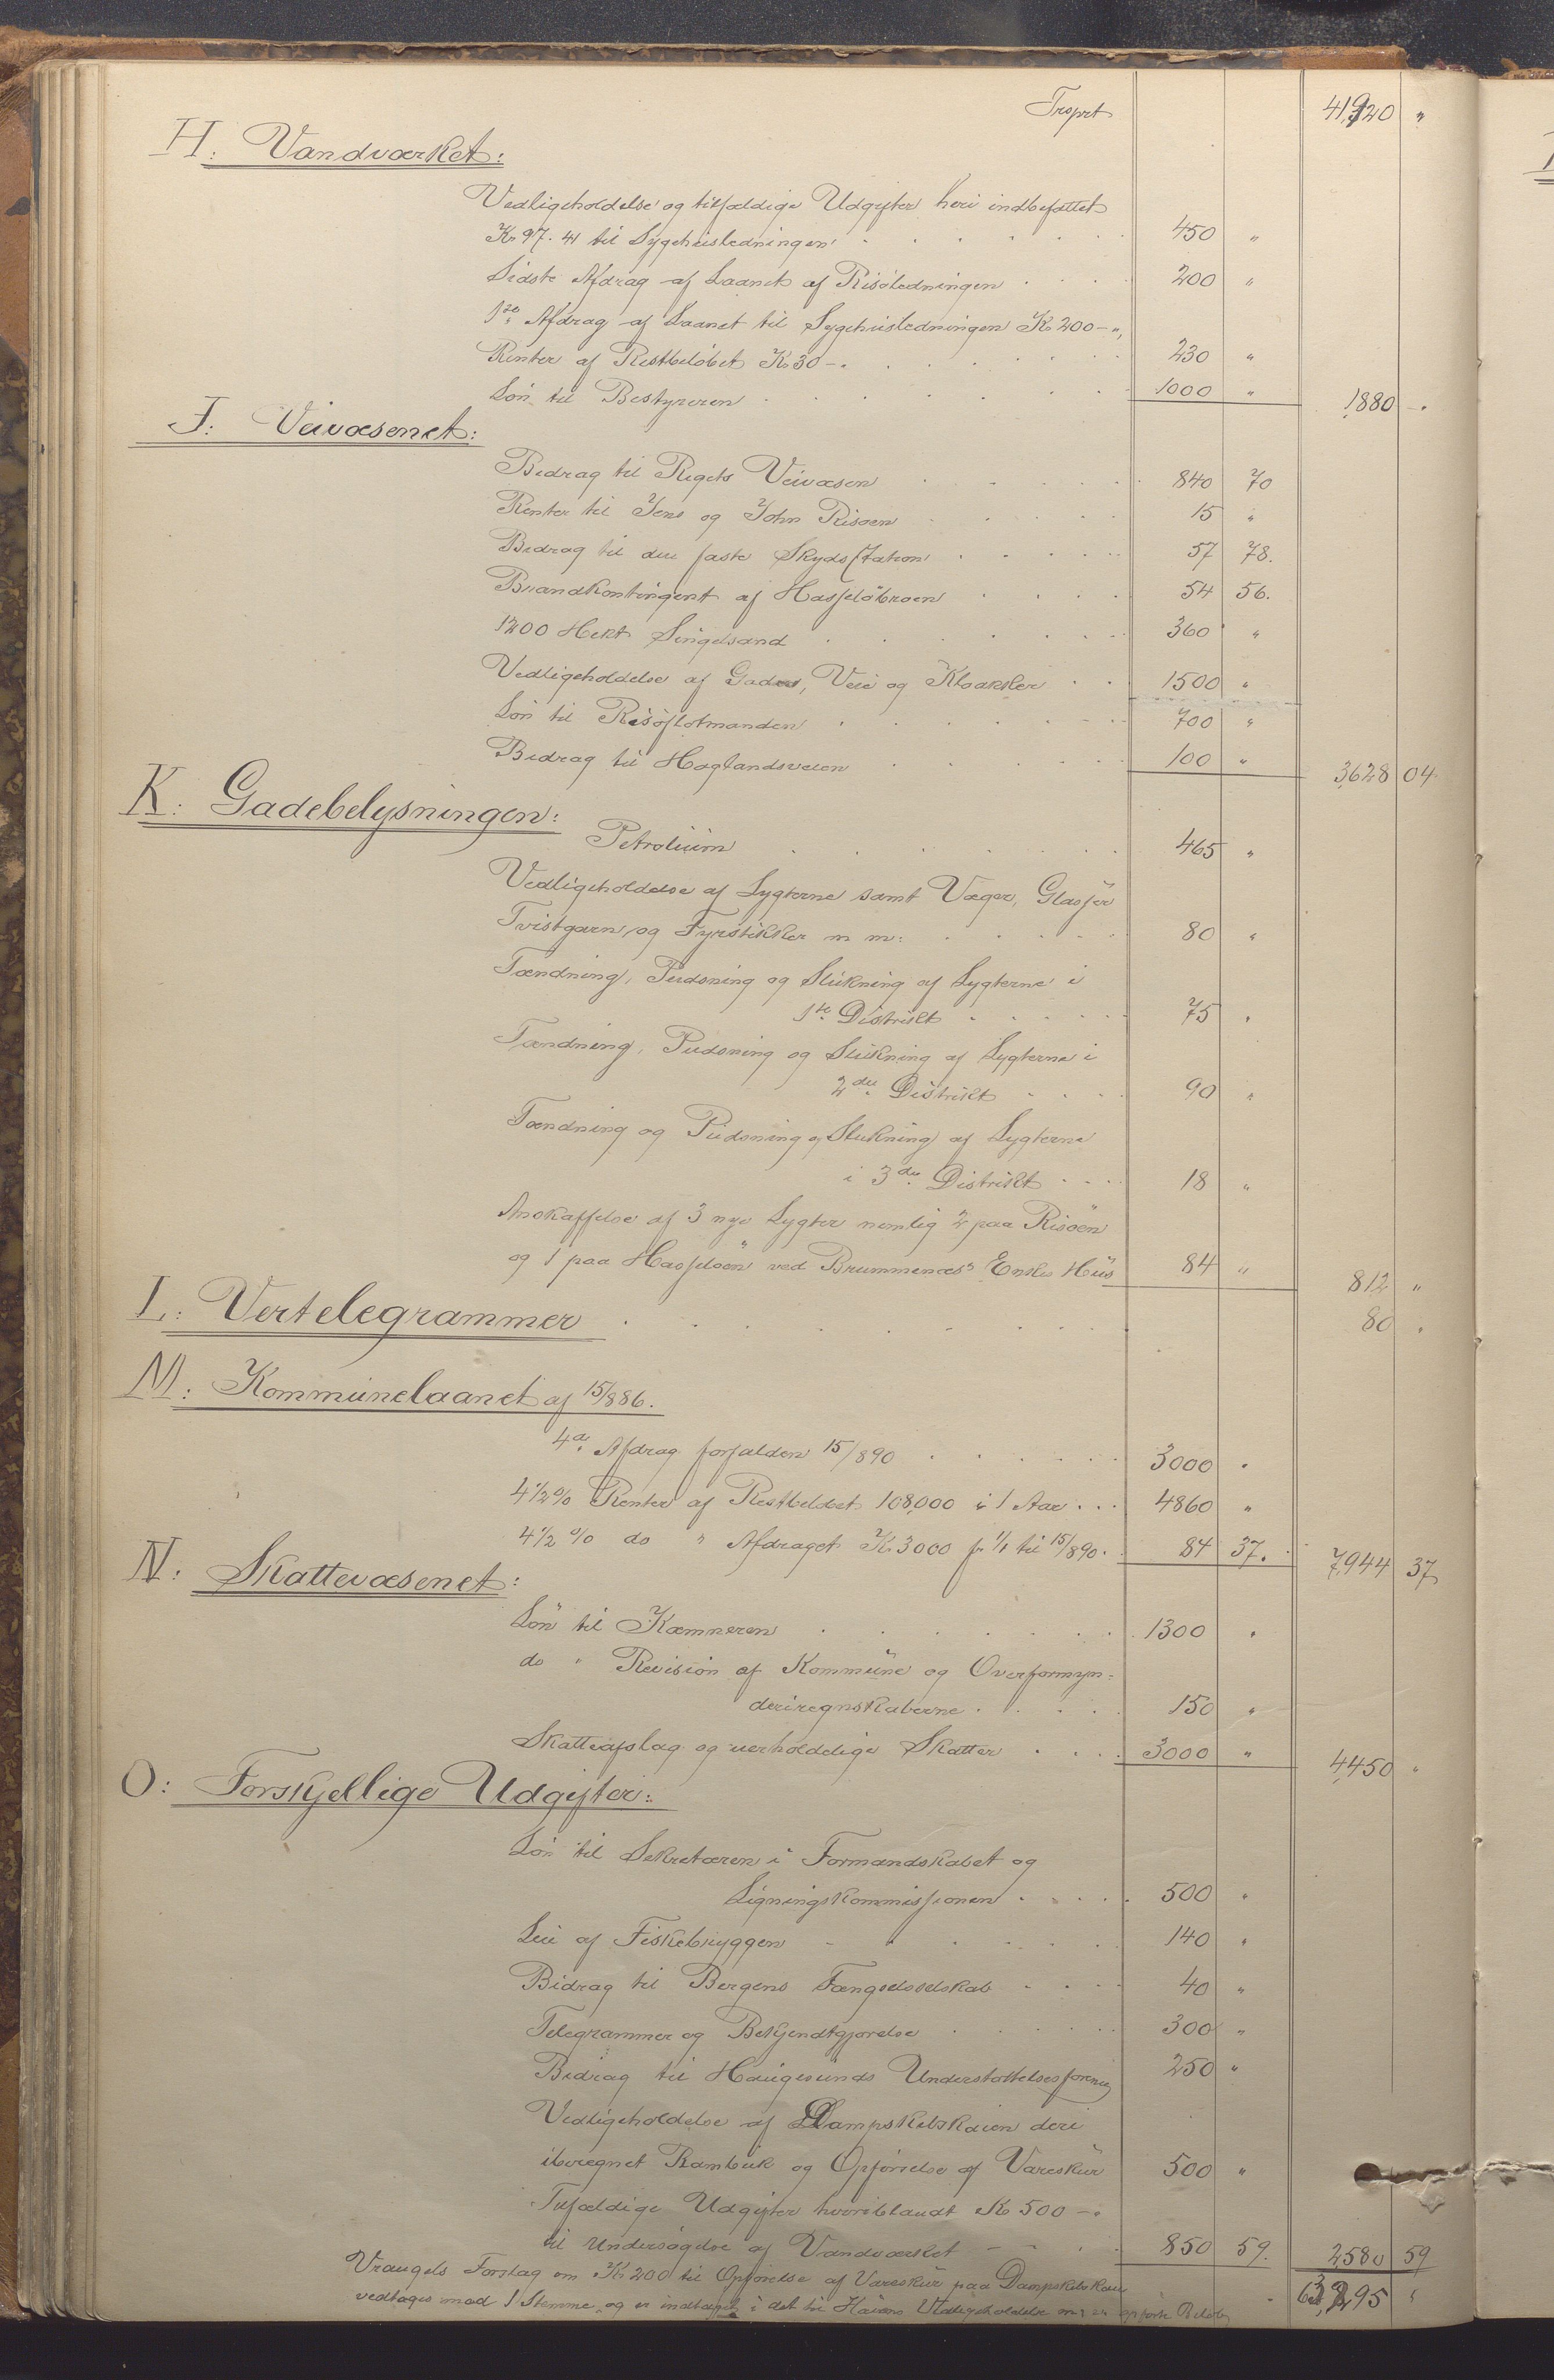 Trsprt 41,920 "
H: Vandværket:
Vedligeholdelse og tilfældige Udgifter heri indbefattet
Kr 97. 41 til Sygehusledningen . . . . . . 450 "
Sidste Afdrag af Laanet af Risøledningen . . . 200 "
1ste Afdrag af Laanet til Sygehusledningen Kr 200 - ",
Renter af Restbeløbet Kr 30 - " . . . . . 230 "
Løn til Bestyreren . . . . . . . 1000 " 1880 - "
J: Veivæsenet:
Bidrag til Rigets Veivæsen . . . . . . 840 70
Renter til Jens og John Risøen . . . . . 15 "
Bidrag til den faste Skydsstation . . . . . 57 78.
Brandkontingent af Hasseløbroen . . . . 54 56.
1200 Hekt. Singelsand . . . . . . 360 "
Vedligeholdelse af Gader, Veie og Kloakker . . 1500 "
Løn til Risøflotmanden . . . . . . 700 "
Bidrag til Haglandsveien . . . . . 100 " 3,628 04
K: Gadebelysningen:
Petroleum . . . . . . 465 "
Vedligeholdelse af Lygterne samt Væger, Glasser
Tvistgarn og Fyrstikker m m: . . . . . 80 "
Tændning, Pudsning og Slukning af Lygterne i
1ste Distrikt . . . . . 75 "
Tændning, Pudsning og Slukning af Lygterne i
2det Distrikt . . . . 90 "
Tændning og Pudsning og Slukning af Lygterne
i 3die Distrikt . . . 18 "
Anskaffelse af 3 nye Lygter nemlig 2 paa Risøen
og 1 paa Hasseløen ved Brummenæs's Enkes Hus 84 " 812 "
L: Vertelegrammer . . . . . . . . 80 "
M: Kommunelaanet af 15/8 86.
4de Afdrag forfalden 15/8 90 . . . . . . 3000 "
4 1/2 % Renter af Restbeløbet 108,000 i 1 Aar . . . 4860 "
4 1/2 % do " Afdraget Kr 3000 fr 1/1 til 15/8 90 . . 84 37. 7,944 37
N: Skattevæsenet:
Løn til Kæmneren . . . . . . 1300 "
do " Revision af Kommune og Overformyn-
deriregnskaberne . . . . . 150 "
Skatteafslag og uerholdelige Skatter . . . . 3000 " 4,450 "
O: Forskjellige Udgifter:
Løn til Sekretæren i Formandskabet og
Ligningskommissionen . . . . . 500 "
Leie af Fiskebryggen - . . . . . 140 "
Bidrag til Bergens Fængselsselskab . . . . 40 "
Telegrammer og Bekjendtgjørelse . . . . . 300 "
Bidrag til Haugesunds Understøttelsesforening 250 "
Vedligeholdelse af Dampskibskaien deri
iberegnet Rambuk og Opførelse af Vareskur 500 "
Tilfældige Udgifter hvoriblandt Kr 500 - "
til Undersøgelse af Vandværket - - . . 850 59. 2,580 59
Vrangels Forslag om Kr 200 til Opførelse af Vareskur paa Dampskibskaien 63,295 "
vedtages mod 1 Stemme og er indtaget i det til Kaiens Vedligeholdelse m. m. opførte Beløb